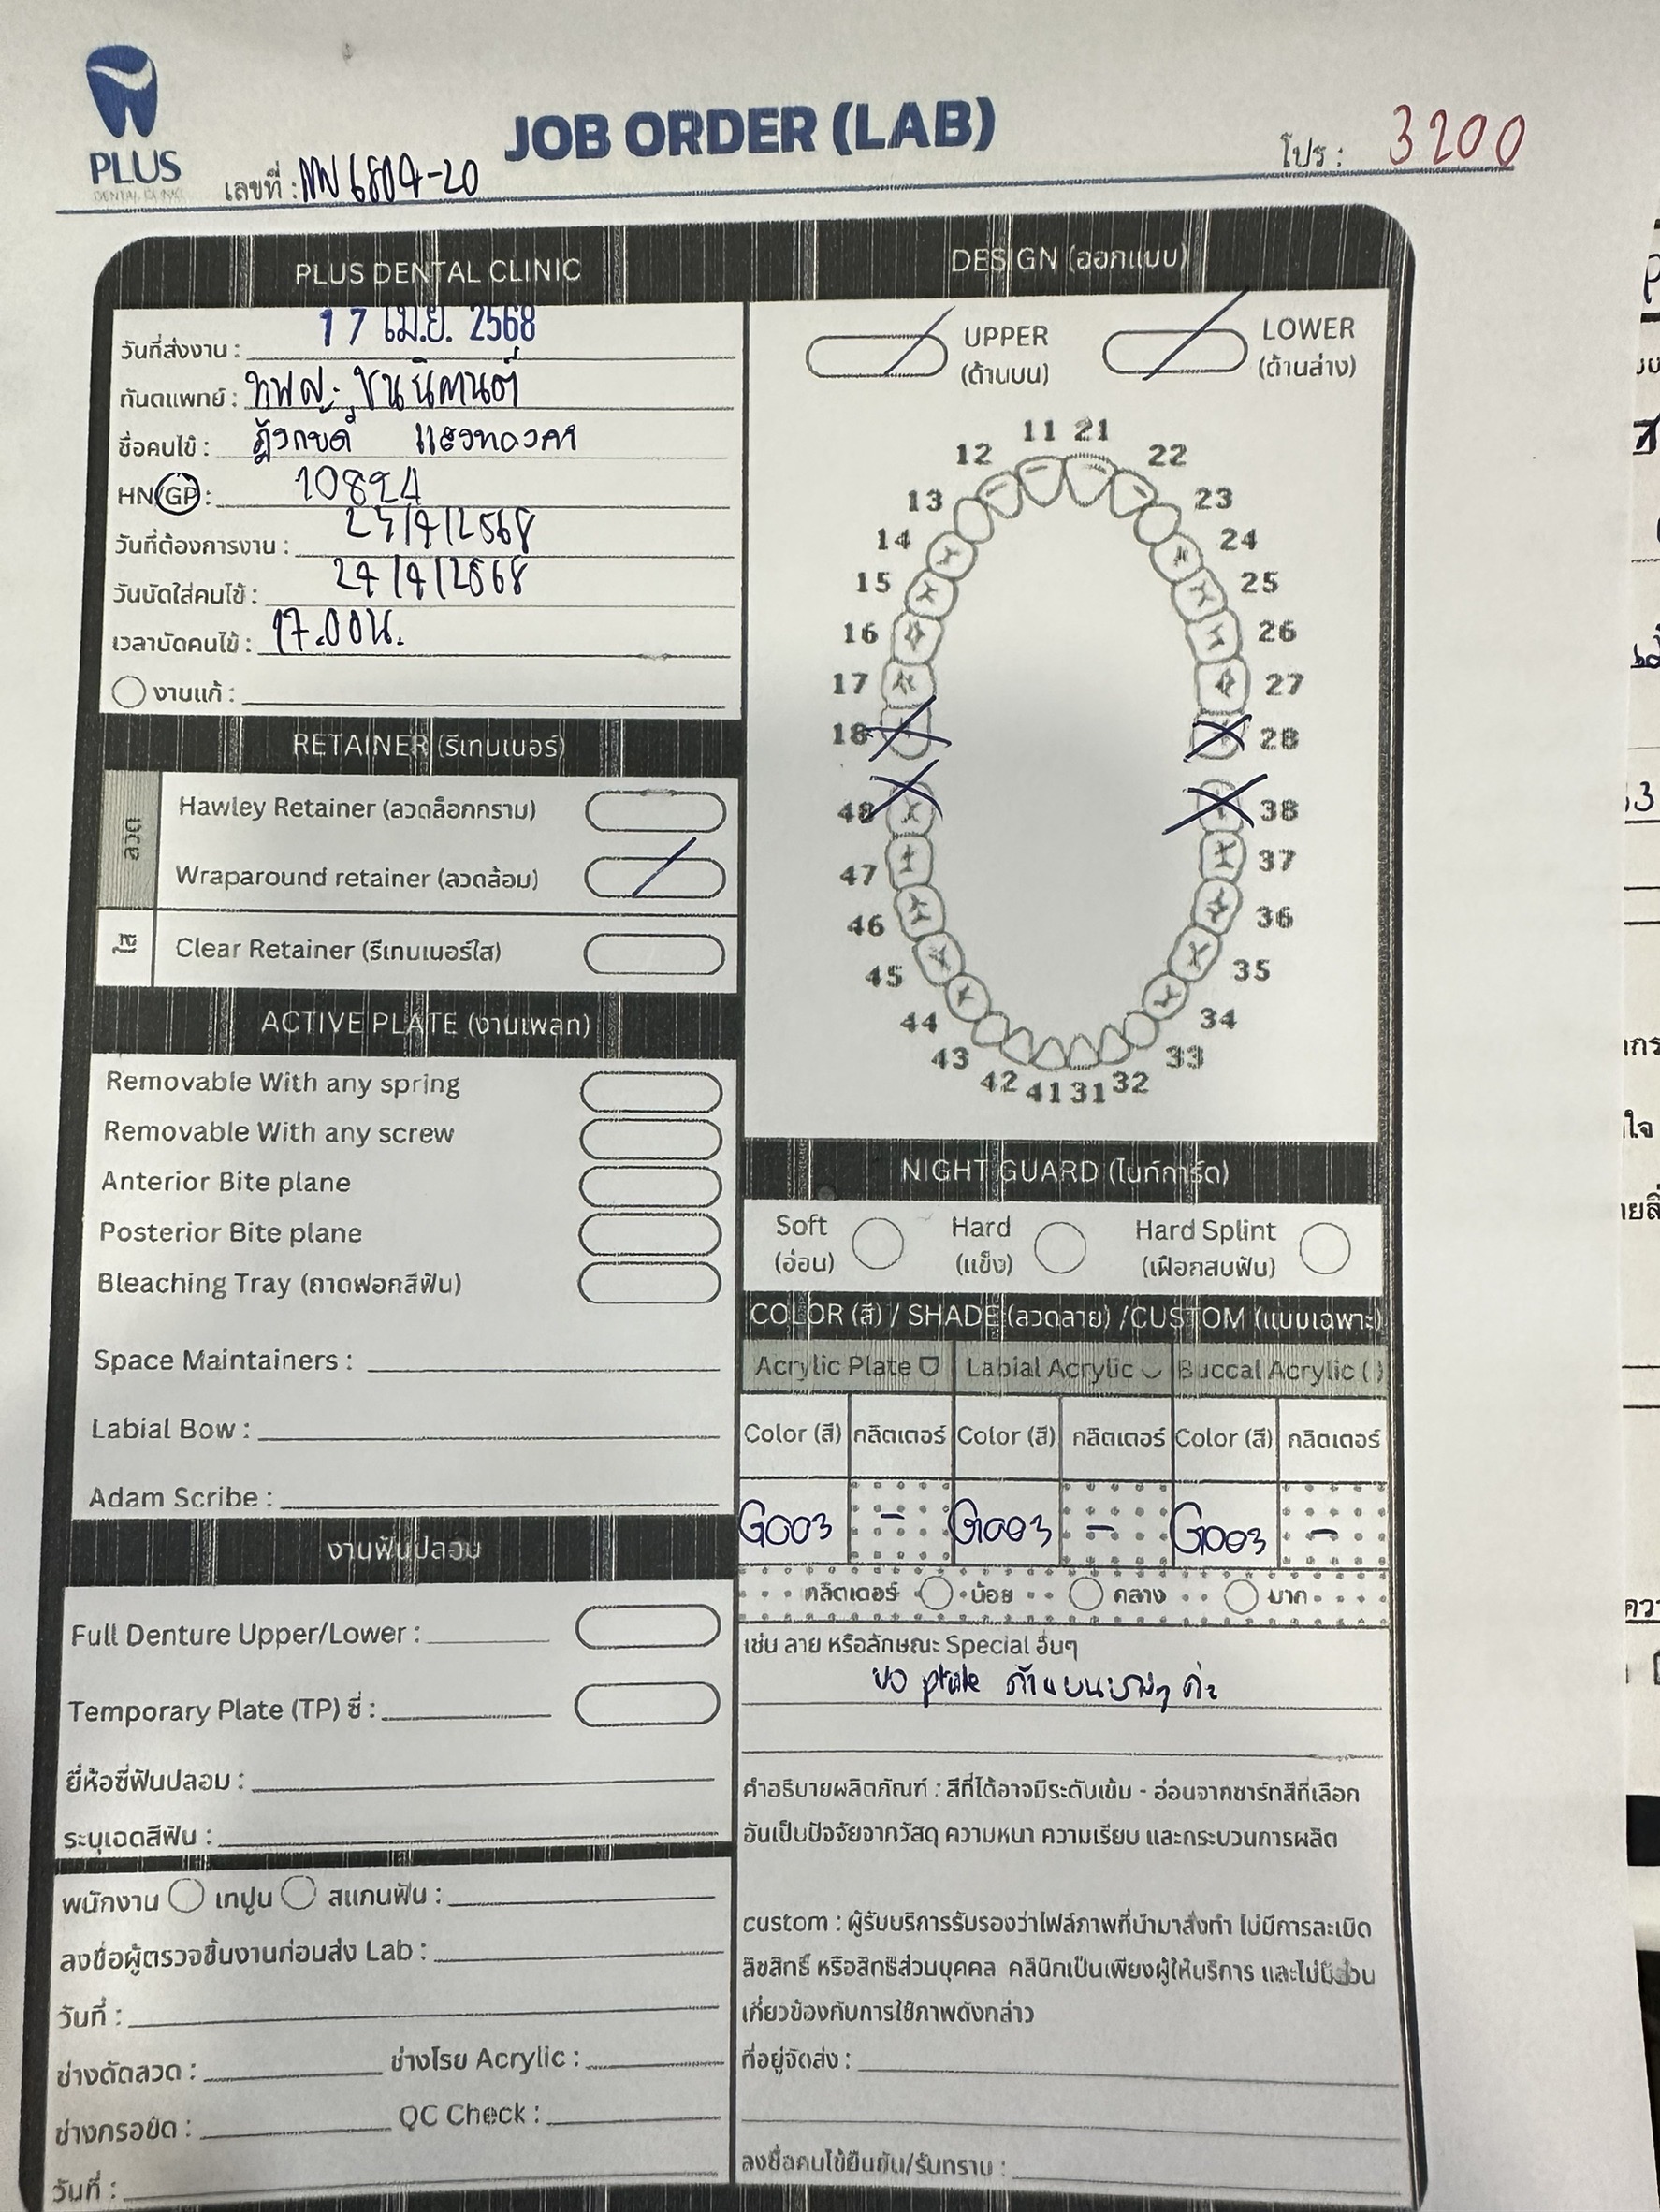 PLUS
DENTAL CLINIC
JOB ORDER (LAB)
เลขที่ : NN6804-20
โปร : 3200
PLUS DENTAL CLINIC
วันที่ส่งงาน : 17 เม.ย. 2568
ทันตแพทย์ : ทพญ. ชนนิกานต์
ชื่อคนไข้ :
HN/GP : 10824
วันที่ต้องการงาน : 23/4/2568
วันนัดใส่คนไข้ : 24/4/2568
เวลานัดคนไข้ : 17.00น.
งานแก้ :
RETAINER (รีเทนเนอร์)
ลวด
Hawley Retainer (ลวดล็อกกราม)
Wraparound retainer (ลวดล้อม)
ใส
Clear Retainer (รีเทนเนอร์ใส)
ACTIVE PLATE (งานเพลท)
Removable With any spring
Removable With any screw
Anterior Bite plane
Posterior Bite plane
Bleaching Tray (ถาดฟอกสีฟัน)
Space Maintainers :
Labial Bow :
Adam Scribe :
งานฟันปลอม
Full Denture Upper/Lower :
Temporary Plate (TP) ซี่ :
ยี่ห้อซี่ฟันปลอม :
ระบุเฉดสีฟัน :
พนักงาน เทปูน สแกนฟัน :
ลงชื่อผู้ตรวจชิ้นงานก่อนส่ง Lab :
วันที่ :
ช่างดัดลวด : ช่างโรย Acrylic :
ช่างกรอขัด : QC Check :
วันที่ :
DESIGN (ออกแบบ)
UPPER
(ด้านบน)
LOWER
(ด้านล่าง)
11 21
12 22
13 23
14 24
15 25
16 26
17 27
18 28
48 38
47 37
46 36
45 35
44 34
43 33
42 41 31 32
NIGHT GUARD (ไนท์การ์ด)
Soft
(อ่อน)
Hard
(แข็ง)
Hard Splint
(เฝือกสบฟัน)
COLOR (สี) / SHADE (ลวดลาย) /CUSTOM (แบบเฉพาะ)
Acrylic Plate Labial Acrylic Buccal Acrylic ( )
Color (สี) กลิตเตอร์ Color (สี) กลิตเตอร์ Color (สี) กลิตเตอร์
G003 - G003 - G003 -
กลิตเตอร์ น้อย กลาง มาก
เช่น ลาย หรือลักษณะ Special อื่นๆ
ขอ plate ด้านบนบางๆ ค่ะ
คำอธิบายผลิตภัณฑ์ : สีที่ได้อาจมีระดับเข้ม - อ่อนจากชาร์ทสีที่เลือก
อันเป็นปัจจัยจากวัสดุ ความหนา ความเรียบ และกระบวนการผลิต
custom : ผู้รับบริการรับรองว่าไฟล์ภาพที่นำมาสั่งทำ ไม่มีการละเมิด
ลิขสิทธิ์ หรือสิทธิส่วนบุคคล คลินิกเป็นเพียงผู้ให้บริการ และไม่มีส่วน
เกี่ยวข้องกับการใช้ภาพดังกล่าว
ที่อยู่จัดส่ง :
ลงชื่อคนไข้ยืนยัน/รับทราบ :